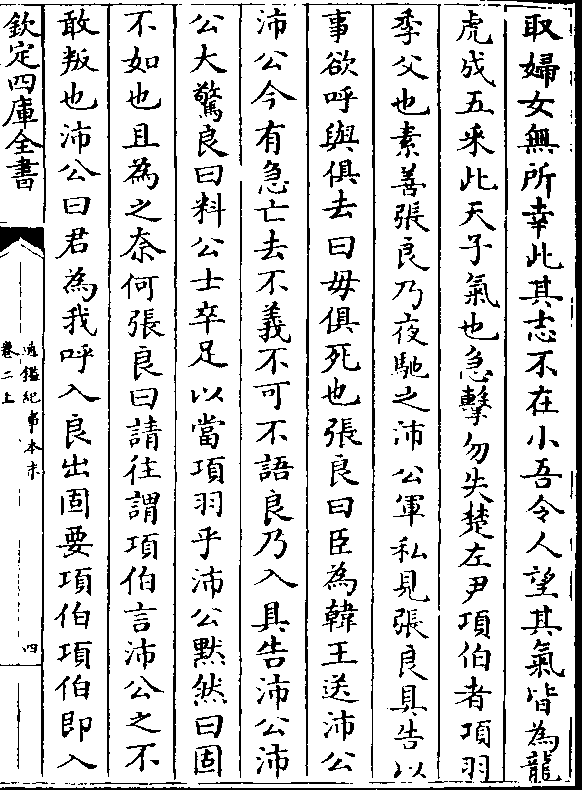 取婦女無所幸此其志不在小吾令人望其氣皆為龍
虎成五采此天子氣也急擊勿失楚左尹項伯者項羽
季父也素善張良乃夜馳之沛公軍私見張良具告以
事欲呼與俱去曰毋俱死也張良曰臣為韓王送沛公
沛公今有急亡去不義不可不語良乃入具告沛公沛
公大驚良曰料公士卒足以當項羽乎沛公默然曰固
不如也且為之奈何張良曰請往謂項伯言沛公之不
敢叛也沛公曰君為我呼入良出固要項伯項伯即入
欽定四庫全書
通鑑紀事本末
卷二上
四